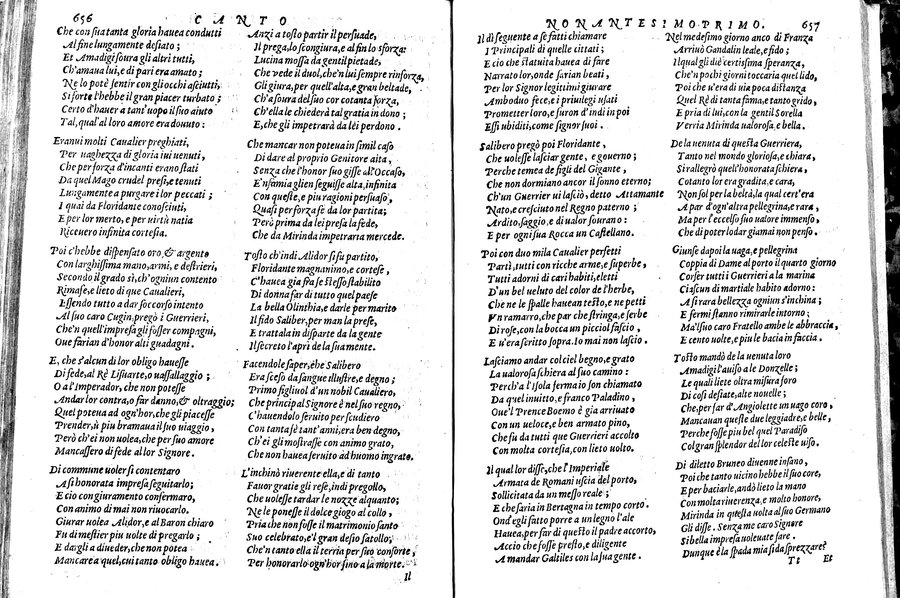 656
CANTO
Che con sua tanta gloria hauea condutti
Al fine lungamente desiato;
Et Amadigi soura gli altri tutti,
Ch'amaua lui, e di pari era amato;
Ne lo potè sentir con gli occhi asciutti,
Si forte l'hebbe il gran piacer turbato;
Certo d'hauer a tant'uopo il suo aiuto
Tal, qual'al loro amore era douuto:
Eranui molti Caualier preghiati,
Per uaghezza di gloria iui uenuti,
Che per forza d'incanti eran stati
Da quel Mago crudel presi, e tenuti
Lungamente a purgare i lor peccati;
I quai da Floridante conosciuti,
E per lor merto, e per uirtù natia
Riceuero infinita cortesia.
Poi c'hebbe dispensato oro, & argento
Con larghissima mano, armi, e destrieri,
Secondo il grado sì, ch'ogniun contento
Rimase, e lieto di que Caualieri,
Essendo tutto a dar soccorso intento
Al suo caro Cugin, pregò i Guerrieri,
Che'n quell'impresa gli fosser compagni,
Oue farian d'honor alti guadagni.
E, che s'alcun di lor obligo hauesse
Di fede, al Rè Lisuarte, o uassallaggio;
O a l'Imperador, che non potesse
Andar lor contra, o far danno, & oltraggio;
Quel poteua ad ogn'hor, che gli piacesse
Prender, sì piu bramaua il suo uiaggio,
Però ch'ei non uolea, che per suo amore
Mancassero di fede al lor Signore.
Di commune uoler si contentaro
Asì honorata impresa seguitarlo;
E cio con giuramento confermaro,
Con animo di mai non riuocarlo.
Giurar uolea Alidor, e al Baron chiaro
Fu di mestier piu uolte di pregarlo;
E dargli a diueder, che non potea
Mancare a quel, cui tanto obligo hauea.
Anzi a tosto partir il persuade,
Il prega, lo scongiura, e al fin lo sforza:
Lucina mossa da gentil pietade,
Che vede il duol, che'n lui sempre rinforza,
Gli giura, per quell'alta, e gran beltade,
Ch'a soura del suo cor cotanta forza,
Ch'ella le chiederà tal gratia in dono;
E, che gli impetrarà da lei perdono.
Che mancar non poteua in simil caso
Di dare al proprio Genitore aita,
Senza che l'honor suo gisse all'Occaso,
E'nfamia glien seguisse alta, infinita
Con queste, e piu ragioni persuaso,
Quasi per forza fè da lor partita;
Però prima da lei presa la fede,
Che da Mirinda impetraria mercede.
Tosto ch'indi Alidor si fu partito,
Floridante magnanimo, e cortese,
C'hauea gia fra se stesso stabilito
Di donna far di tutto quel paese
La bella Olinthia, e darle per marito
Il fido Saliber, per man la prese,
E trattala in disparte da la gente
Il secreto l'aprì de la sua mente.
Facendole saper, che Salibero
Era sceso da sangue illustre, e degno;
Primo figliuol d'un nobil Caualiero,
Che principal Signore è nel suo regno,
C'hauendolo seruito per scudiero
Con tanta fè tant'anni, era ben degno,
Ch'ei gli mostrasse con animo grato,
Che non hauea seruito ad huomo ingrato.
L'inchinò riuerente ella, e di tanto
Fauor gratie gli rese, indi pregollo,
Che uolesse tardar le nozze alquanto;
Ne le ponesse il dolce giogo al collo,
Pria che non fosse il matrimonio santo
Suo celebrato, e'l gran desio satollo;
Che'n tanto ella il terria per suo consorte,
Per honorarlo ogn'hor sino a la morte.
Il
NONANTESIMOPRIMO.
657
Il dì seguente a se fatti chiamare
I Principali di quelle cittati;
E cio che statuita hauea di fare
Narrato lor, onde sarian beati,
Per lor Signor legitimi giurare
Ambo duo fece, e i priuilegi usati
Prometter loro, e furon d'indi in poi
Essi ubiditi, come signor suoi.
Salibero pregò poi Floridante,
Che uolesse lasciar gente, e gouerno;
Perche temea de figli del Gigante,
Che non dormiano ancor il sonno eterno;
Ch'un Guerrier ui lasciò, detto Attamante
Nato, e cresciuto nel Regno paterno;
Ardito, saggio, e di ualor sourano:
E per ogni sua Rocca un Castellano.
Poi con duo mila Caualier perfetti
Partì, tutti con ricche arme, e superbe,
Tutti adorni di cari habiti, eletti
D'un bel ueluto del color de l'herbe,
Che ne le spalle hauean testo, e ne petti
Vn ramarro, che par che stringa, e serbe
Di rose, con la bocca un picciol fascio,
E u'era scritto sopra. Io mai non lascio.
Lasciamo andar col ciel benigno, e grato
La ualorosa schiera al suo camino:
Perch'a l'Isola ferma io son chiamato
Da quel inuitto, e franco Paladino,
Oue'l Prence Boemo è gia arriuato
Con un ueloce, e ben armato pino,
Che fu da tutti que Guerrieri accolto
Con molta cortesia, con lieto uolto.
Il qual lor disse, che l'Imperiale
Armata de Romani uscia del porto,
Sollicitata da un messo reale;
E che saria in Bertagna in tempo corto.
Ond'egli fatto porre a un legno l'ale
Hauea, per far di questo il padre accorto,
Accio che fosse presto, e diligente
A mandar Galtiles con la sua gente.
Nel medesimo giorno anco di Franza
Arriuò Gandalin leale, e fido;
Il qual gli diè certissima speranza,
Che'n pochi giorni toccaria quel lido,
Poi che u'era di uia poca distanza
Quel Rè di tanta fama, e tanto grido,
E pria di lui, con la gentil Sorella
Verria Mirinda ualorosa, e bella.
De la uenuta di questa Guerriera,
Tanto nel mondo gloriosa, e chiara,
Si rallegrò quell'honorata schiera;
Cotanto lor era gradita, e cara,
Non sol per la beltà, la qual cert'era
A par d'ogn'altra pellegrina, e rara,
Ma per l'eccelso suo ualore immenso,
Che di poter lodar giamai non penso.
Giunse dapoi la uaga, e pellegrina
Coppia di Dame al porto il quarto giorno
Corser tutti i Guerrieri a la marina
Ciascun di martiale habito adorno:
A sì rara bellezza ogniun s'inchina;
E fermi stanno rimirarle intorno;
Ma'l suo caro Fratello ambe le abbraccia,
E cento uolte, e piu le bacia in faccia.
Tosto mandò de la uenuta loro
Amadigi l'auiso a le Donzelle;
Le quali liete oltra misura foro
Di così desiate, alte nouelle;
Che, per far d'Angiolette un uago coro,
Mancauan queste due leggiadre, e belle,
Perche fosse piu bel quel Paradiso
Col gran splendor del lor celeste uiso.
Di diletto Bruneo diuenne insano,
Poi che tanto uicino hebbe il suo core,
E per baciarle, andò lieto la mano
Con molta riuerenza, e molto honore,
Mirinda in questa uolta al suo Germano
Gli disse. Senza me caro Signore
Si bella impresa uoleuate fare.
Dunque è la spada mia si da sprezzare?
Tt
Et